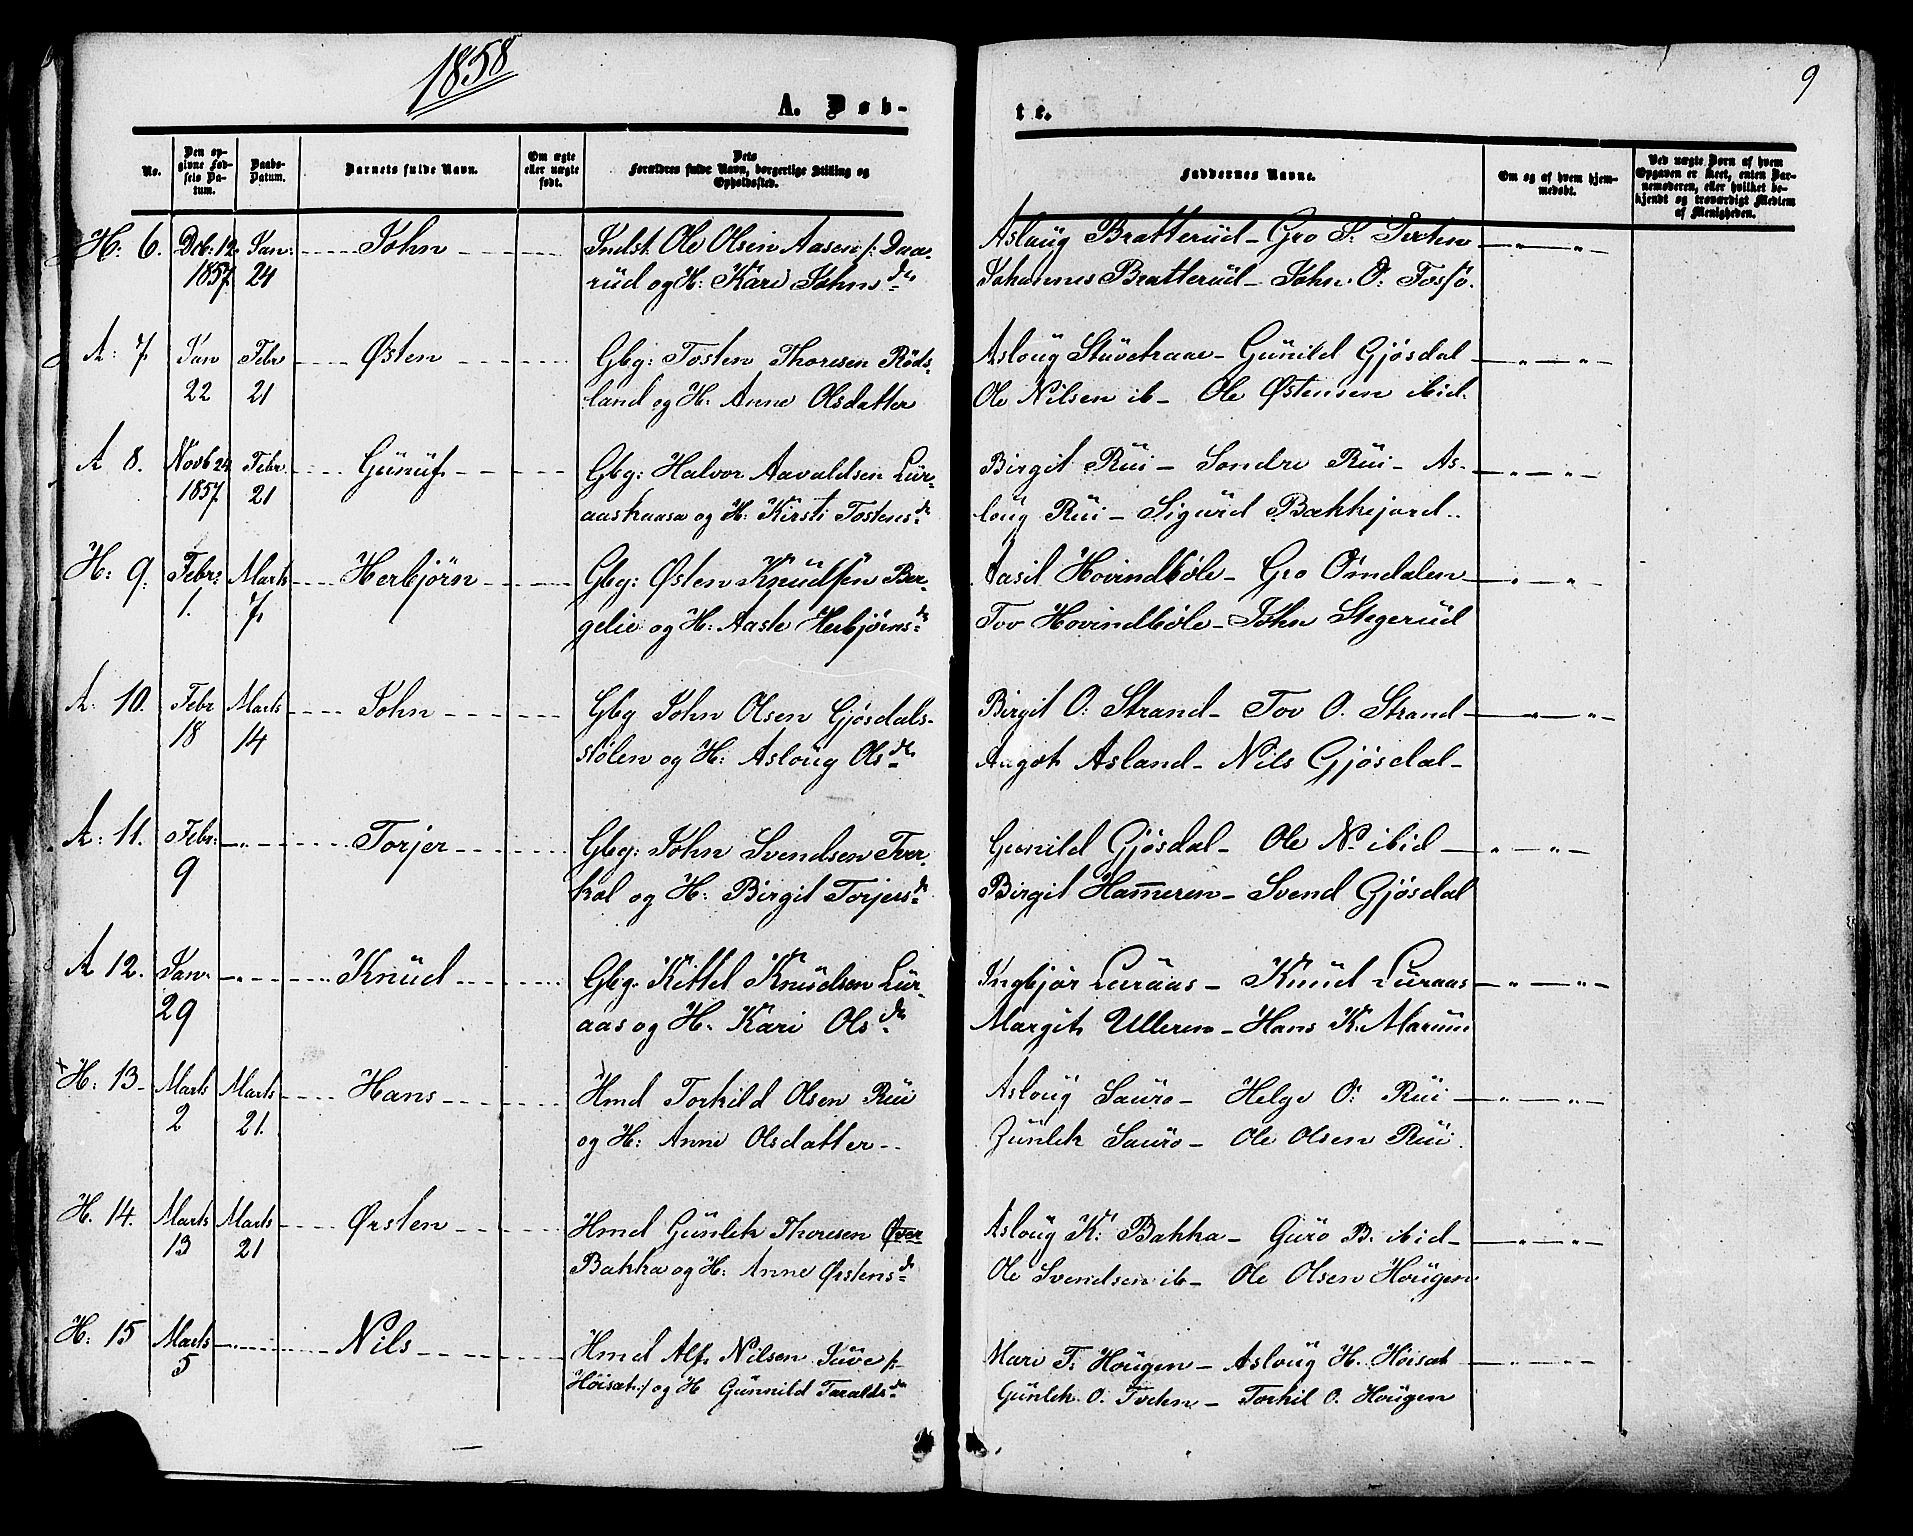 1858
9
A. Døb-
te.
No.
Den opgivne Fødsels Datum.
Daabs-Datum.
Barnets fulde Navn.
Om ægte eller uægte født.
Dets Forældres fulde Navn, borgerlige Stilling og Opholdssted.
Faddernes Navne.
Om og af hvem hjemmedøbt.
Ved uægte Børn af hvem Opgaven er skeet, enten Barnemoderen, eller hvilket bekjendt og troværdigt Medlem af Menigheden.
H: 6. Deb: 12 Jan: John Indst. Ole Olsen Aasen /: Daa- Aslaug Bratterud - Gro S: Tveten - " - "
1857. 24 rud og H: Kari Johnsdr Johannes Bratterud - John O: Fossø.
A: 7. Jan Febr Østen Gbg: Tosten Thoresen Røds- Asloug Stuvetraae - Gunild Gjøsdal - " - "
22 21 land og H: Anne Olsdatter Ole Nilsen ib - Ole Østensen ibid.
A 8. Novb 24 Febr. Gunuf Gbg: Halvor Aavaldsen Lur- Birgit Rui - Sondre Rui - As- - " - "
1857. 21 aaskaasa og H: Kirsti Tostensdr loug Rui - Sigurd Bakkejord.
H: 9. Febr: Marts Herbjørn Gbg: Østen Knudsen Ber- Aasil Hovindbøle - Gro Omdalen - " - "
1. 7. gelie og H: Aaste Herbjørnsdr Tov Hovindbøle - John Stegerud
A: 10. Febr Marts John Gbg John Olsen Gjøsdals- Birgit O: Strand - Tov O. Strand - " - "
18 14 stølen og H: Asloug Olsdr Aagot Asland - Nils Gjøsdal -
A: 11. Febr: - " - Torjer Gbg: John Svendsen Tver- Gunild Gjøsdal - Ole N. ibid - " - "
9 kol og H: Birgit Torjersdr Birgit Hameren - Svend Gjøsdal
A 12. Jan. - " - Knud Gbg. Kittel Knudsen Lur- Ingbjør Luraas - Knud Luraas - " - "
29 aas og H. Kari Olsdr Margit Ulleren - Hans K.
H: 13. Marts Marts Hans Hmd Torkild Olsen Rui Asloug Sauro - Helge O: Rui - " - "
2 21. og H: Anne Olsdatter - Gunlek Sauro - Ole Olsen Rui.
H. 14. Marts Marts Ørsten Hmd Gunlek Thoresen Øver Asloug K: Bakka - Guro B. ibid - " - "
13 21 Bakka og H: Anne Ørstensdr Ole Svendsen ib - Ole Olsen Hougen
H: 15 Marts - " - Nils Hmd Alf Nilsen /: Mari T: Hougen - Asloug H. Høisæt - " - "
5 Høisæt :/ og H Gunnild Taraldsdr Gunlek O. Tveten - Torkil O. Hougen